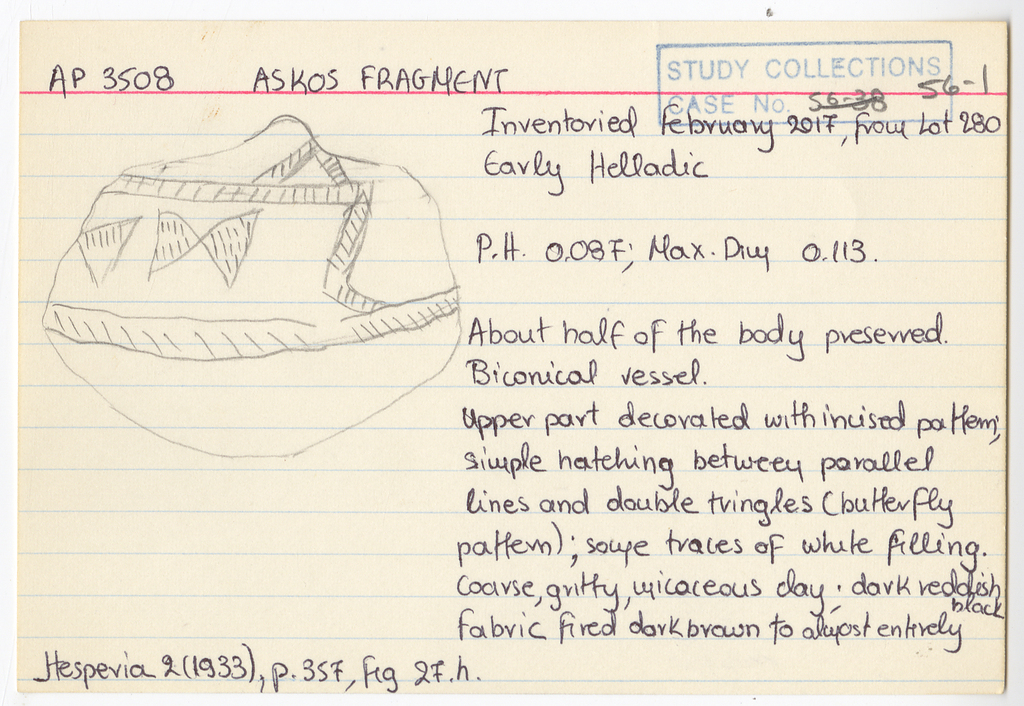 AP 3508 ASKOS FRAGMENT
STUDY COLLECTIONS
CASE No. 56-38 56-1
Inventoried February 2017, from Lot 280
Early Helladic
P.H. 0.087; Max. Dim 0.113.
About half of the body preserved.
Biconical vessel.
Upper part decorated with incised pattern;
simple hatching between parallel
lines and double tringles (butterfly
pattern); some traces of white filling.
Coarse, gritty, micaceous clay; dark reddish
black
fabric fired dark brown to almost entirely
Hesperia 2 (1933), p. 357, fig 27.h.